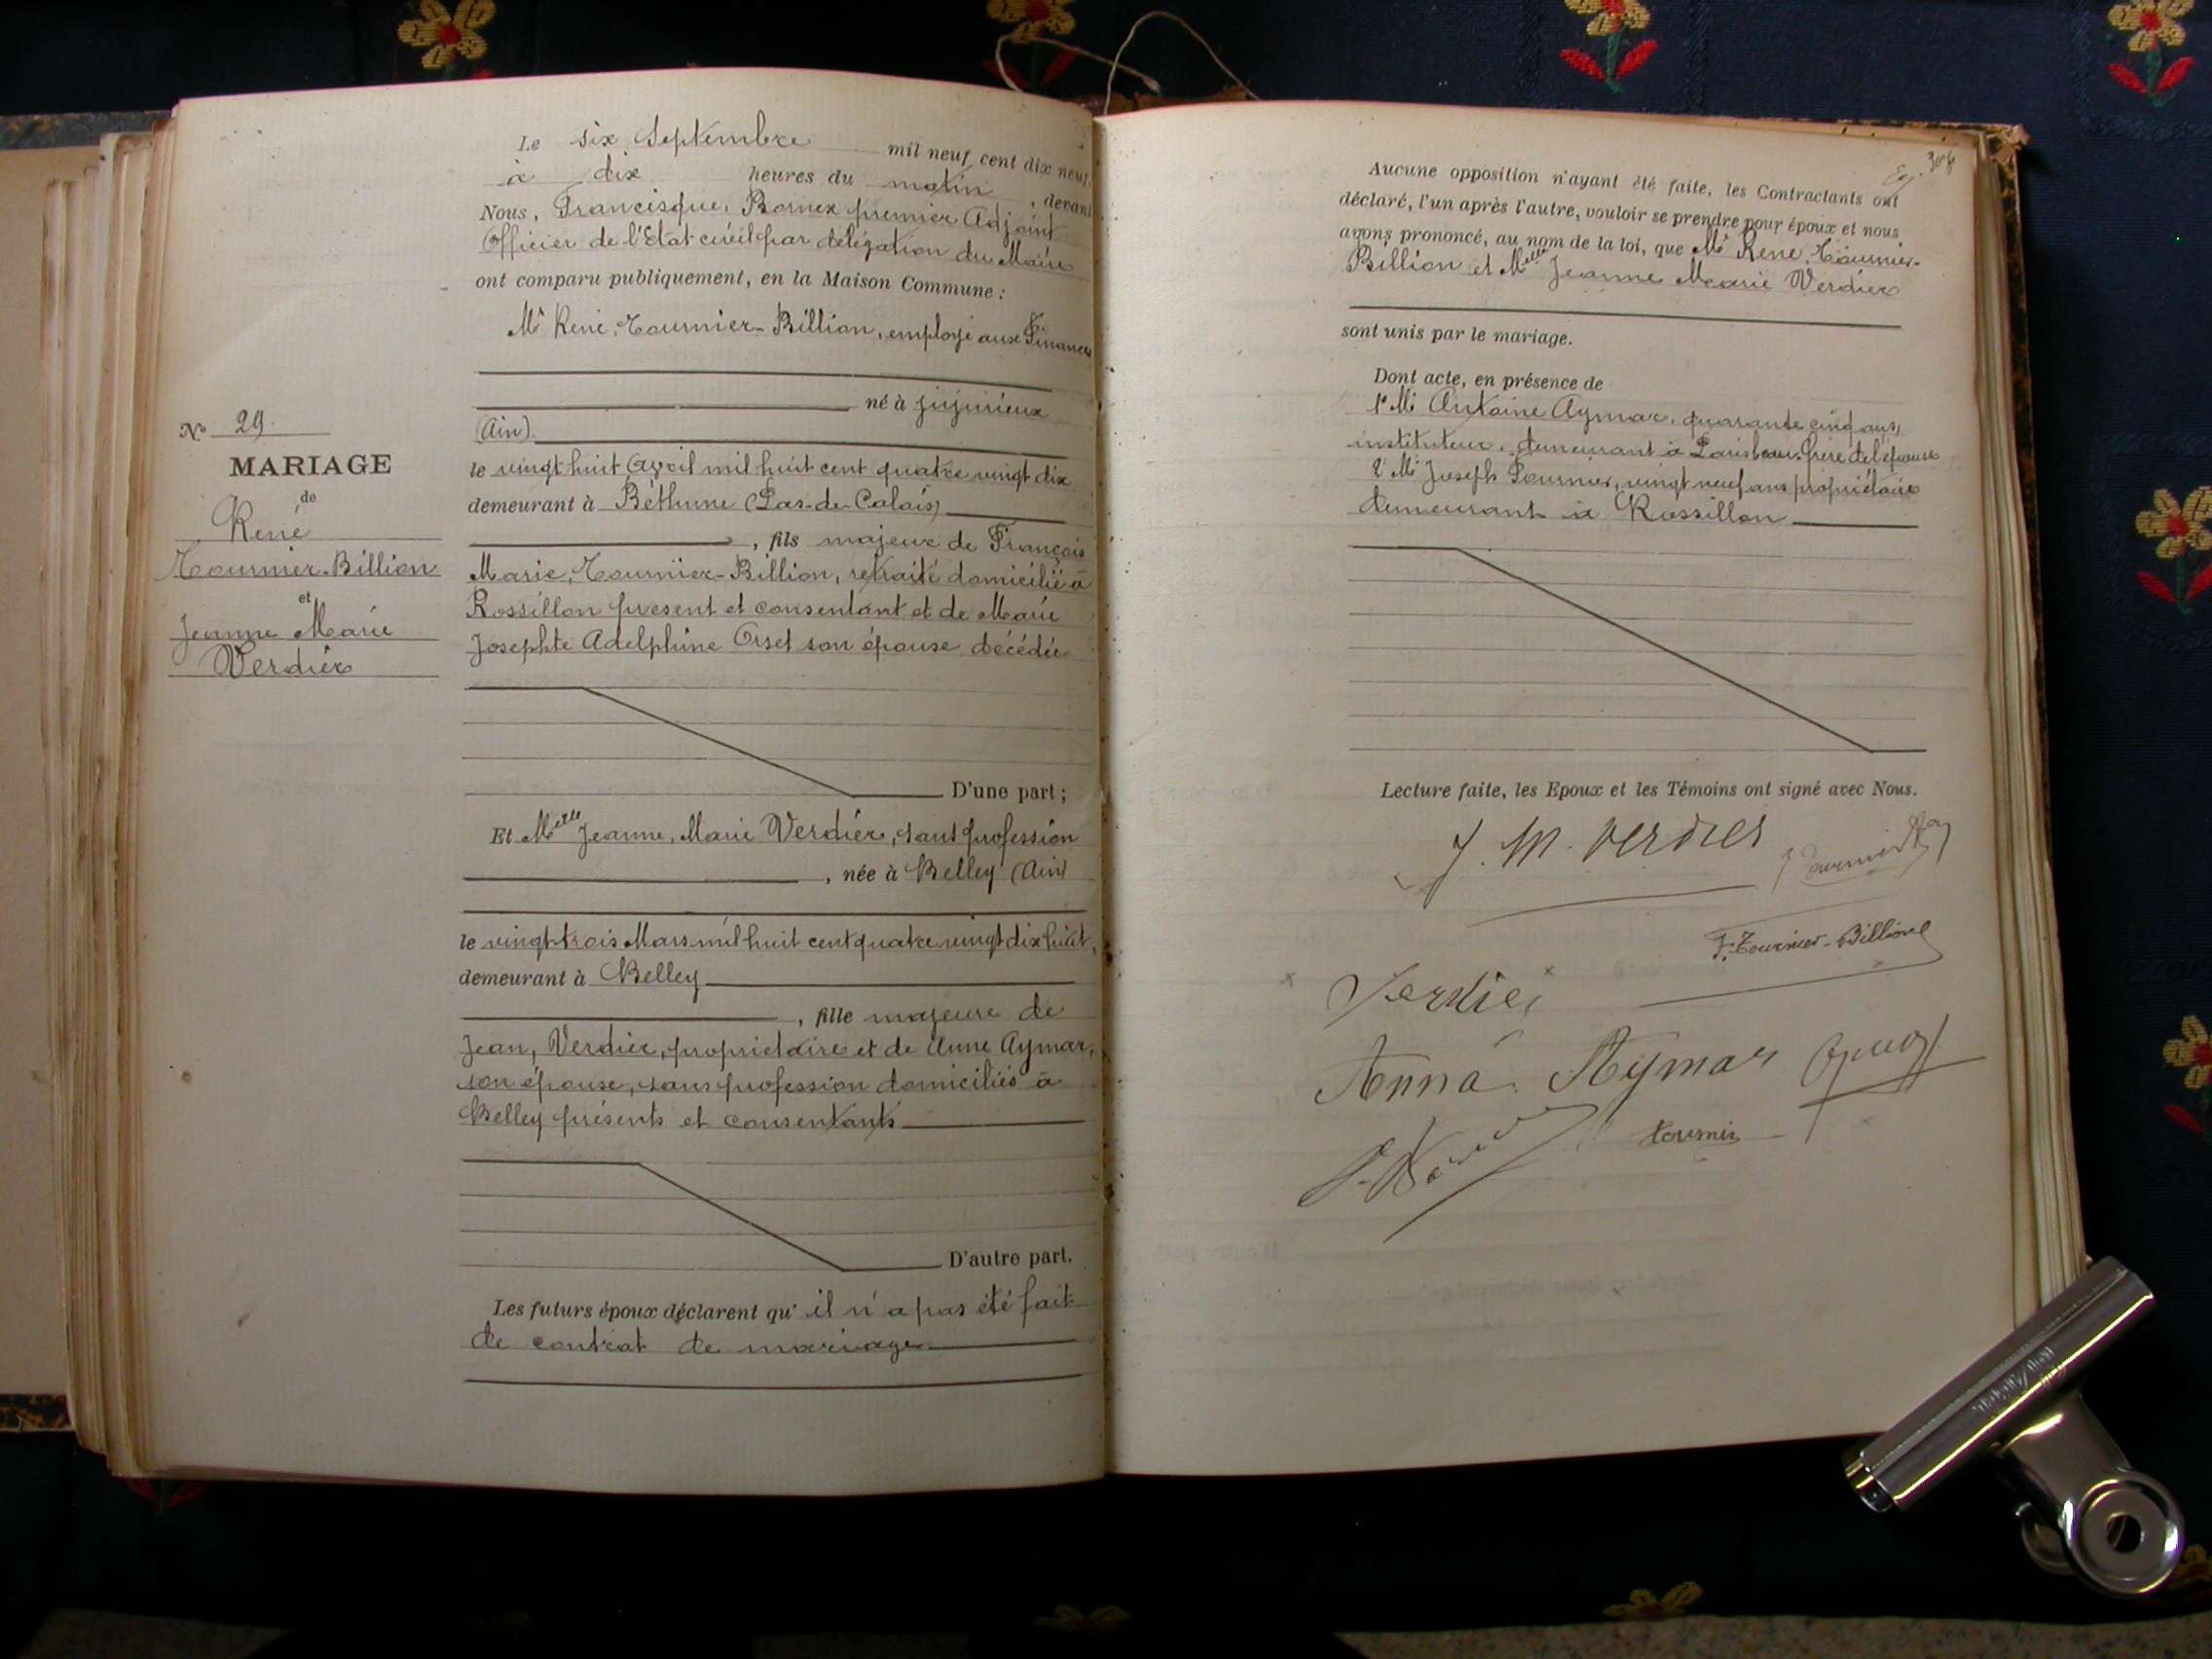 Le six Septembre mil neuf cent dix neuf,
à dix heures du matin, devant
Nous, Francisque, Bornex premier Adjoint
Officier de l'Etat civil par délégation du Maire
ont comparu publiquement, en la Maison Commune :
Mr René, Tournier-Billion, employé aux Finances
né à Jujurieux
(Ain).
le vingt huit Avril mil huit cent quatre vingt dix
demeurant à Béthune (Pas-de-Calais)
, fils majeur de François
Marie, Tournier-Billion, retraité domicilié à
Rossillon présent et consentant et de Marie
Josephte Adelphine Orset son épouse décédée
D'une part ;
Et Melle Jeanne, Marie Verdier, sans profession
, née à Belley (Ain)
le vingt-trois Mars mil huit cent quatre vingt dix huit,
demeurant à Belley
, fille majeure de
Jean, Verdier, propriétaire et de Anne Aymar,
son épouse, sans profession domiciliés à
Belley présents et consentants
D'autre part.
Les futurs époux déclarent qu' il n'a pas été fait
de contrat de mariage
No 29
MARIAGE
de
René
Tournier-Billion
et
Jeanne Marie
Verdier
Aucune opposition n'ayant été faite, les Contractants ont
déclaré, l'un après l'autre, vouloir se prendre pour époux et nous
avons prononcé, au nom de la loi, que Mr René, Tournier-
Billion et Melle Jeanne Marie Verdier
sont unis par le mariage.
Dont acte, en présence de
1° Mr Antoine Aymar, quarante cinq ans,
instituteur, demeurant à Paris beau-frère de l'épouse
2° Mr Joseph Tournier, vingt neuf ans propriétaire
demeurant à Rossillon
Lecture faite, les Epoux et les Témoins ont signé avec Nous.
J. M. Verdier
F. Tournier-Billion
Verdier
Anna Aymar
Tournier